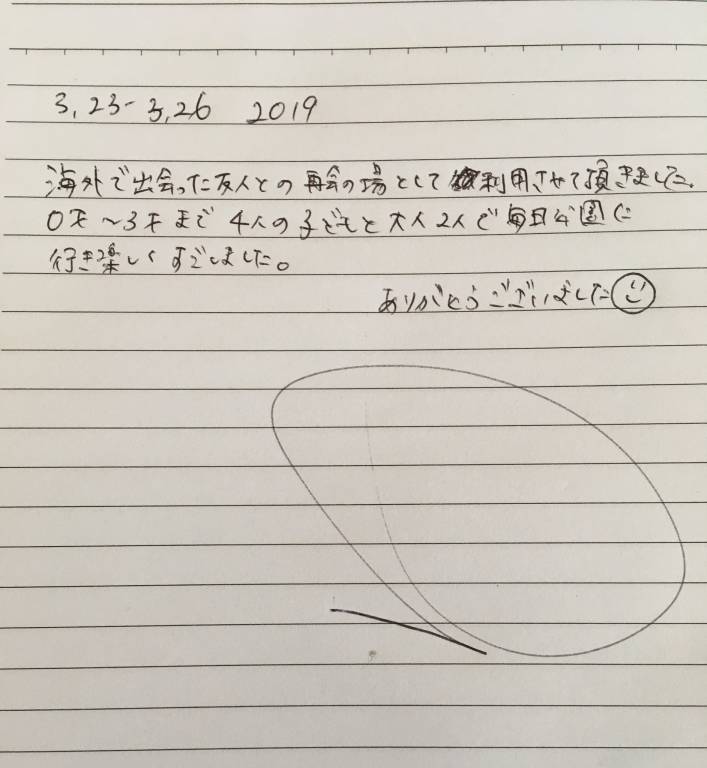 3,23-3,26 2019
海外で出会った友人との再会の場として利用させて頂きました。
0才〜3才まで4人の子どもと大人2人で毎日公園に
行き楽しくすごしました。
ありがとうございました